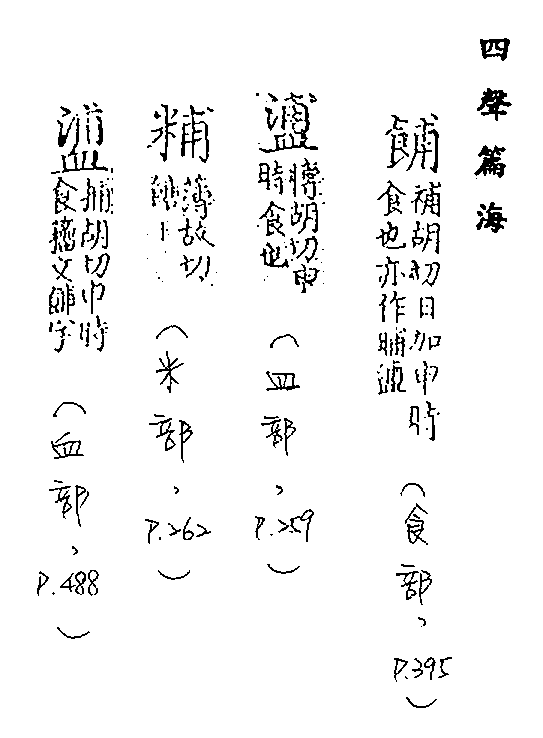 四聲篇海
餔
補胡切日加申時
食也亦作晡逋
（食部，P.395）
𥂈
博胡切申
時食也
（皿部，P.259）
䊇
薄故切
（米部，P.262）
捕胡切申時
食籒文餔字
（血部，P.488）